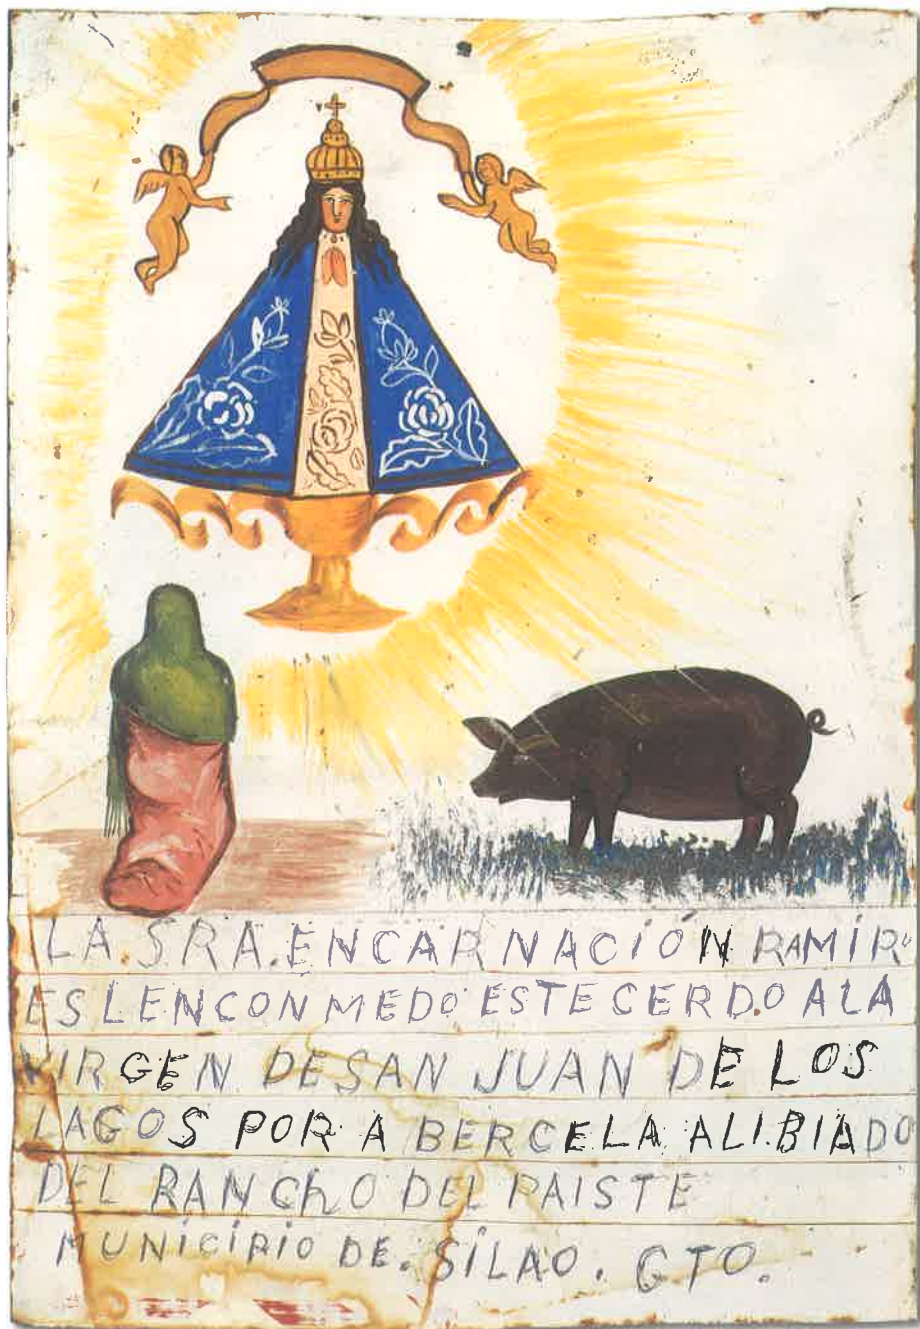 LA. SRA. ENCARNACIÓN RAMIR
ES LENCONMEDO ESTE CERDO A LA
VIRGEN DE SAN JUAN DE LOS
LAGOS POR A BERCELA ALIBIADO
DEL RANChO DEL PAISTE
MUNICIPIO DE. SILAO. GTO.